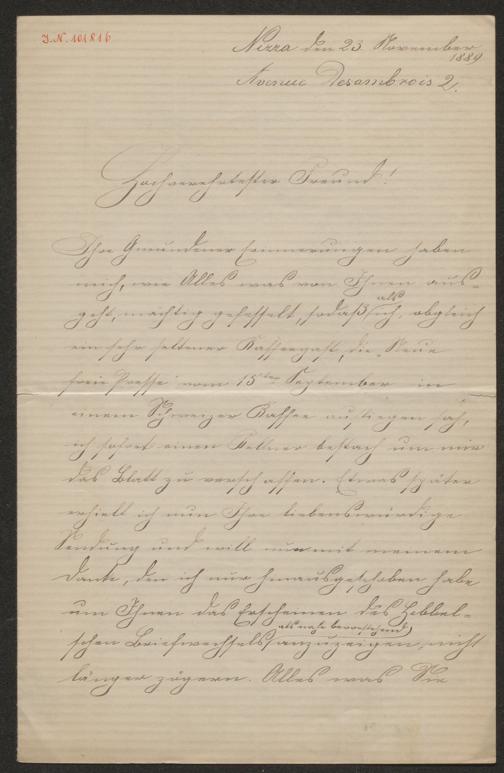 J.N. 101816
Nizza den 23 November
1889
Avenue Desambrois 2.
Hochverehrtester Freund!
Ihre Gmundener Erinnerungen haben
mich, wie Alles was von Ihnen aus-
geht, mächtig gefesselt, sodaß ich, obgleich
als
ein sehr seltener Kaffeegast, die Neue
freie Presse vom 15ten September in
einem Schweizer Kaffee aufliegen sah,
ich sofort einen Kellner bestach um mir
das Blatt zu verschaffen. Etwas später
erhielt ich nun Ihre liebenswürdige
Sendung und will nun mit meinem
Danke, den ich nur hinausgeschoben habe
um Ihnen das Erscheinen des Hebbel-
als nahe bevorstehend
schen Briefwechsels anzuzeigen, nicht
länger zögern. Alles was Sie